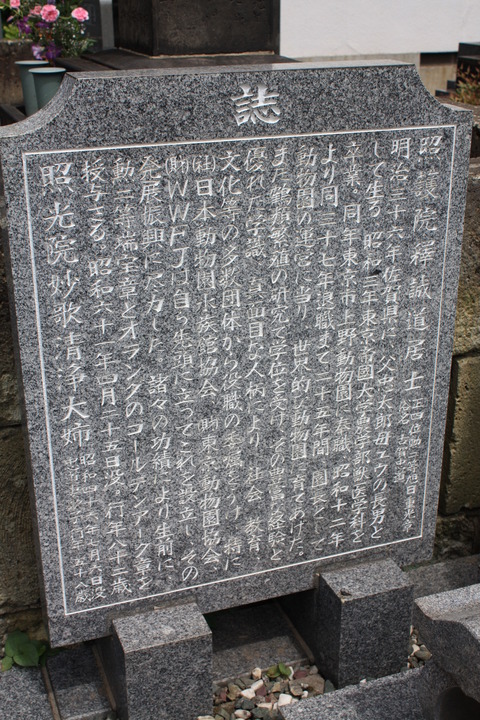 誌
照護院禪誠道居士 正四位勲二等旭日重光章
俗名 古賀忠道
明治三十六年佐賀県に 父忠太郎母ユウの長男と
して生る 昭和三年東京帝國大学農学部獣医学科を
卒業 同年東京市上野動物園に奉職 昭和十二年
より同三十七年退職まで二十五年間 園長として
動物園の運営に当り 世界的な動物園に育てあげた。
また鶴類繁殖の研究で学位を受け その豊富な経験と
優れた学識 真面目な人柄により 社会 教育
文化等の多数団体から役職の委嘱をうけ 特に
(社)日本動物園水族館協会、(財)東京動物園協会、
(財)WWFJは自ら先頭に立ってこれを設立し その
発展振興に尽力した 諸々の功績により生前に
勲二等瑞宝章とオランダのゴールデンアーク章を
授与さる 昭和六十一年四月二十五日没 行年八十二歳
照光院妙歌清浄大姉 昭和四十 年 月六日没
行年五十 歳